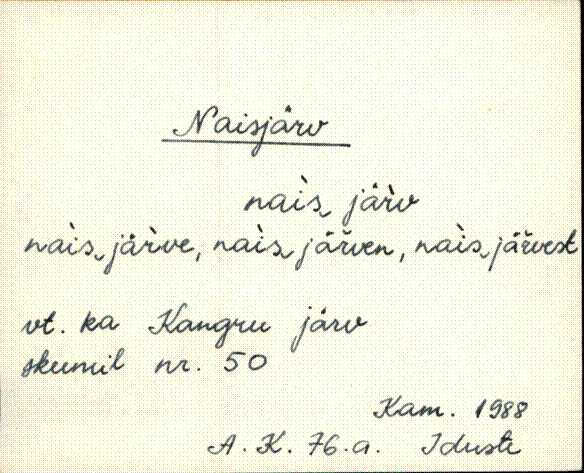 Naisjärv
nais̀‿ järv̀
nais̀‿järve, nais̀‿järven, nais̀‿järvest
vt. ka Kangru järv
skeemil nr. 50
Kam. 1988
A. K. 76. a. Iduste